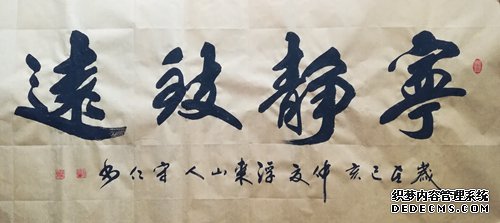 寧靜致遠
歲在己亥仲夏東山人守仁書
织梦内容管理系统
DEDECMS.COM